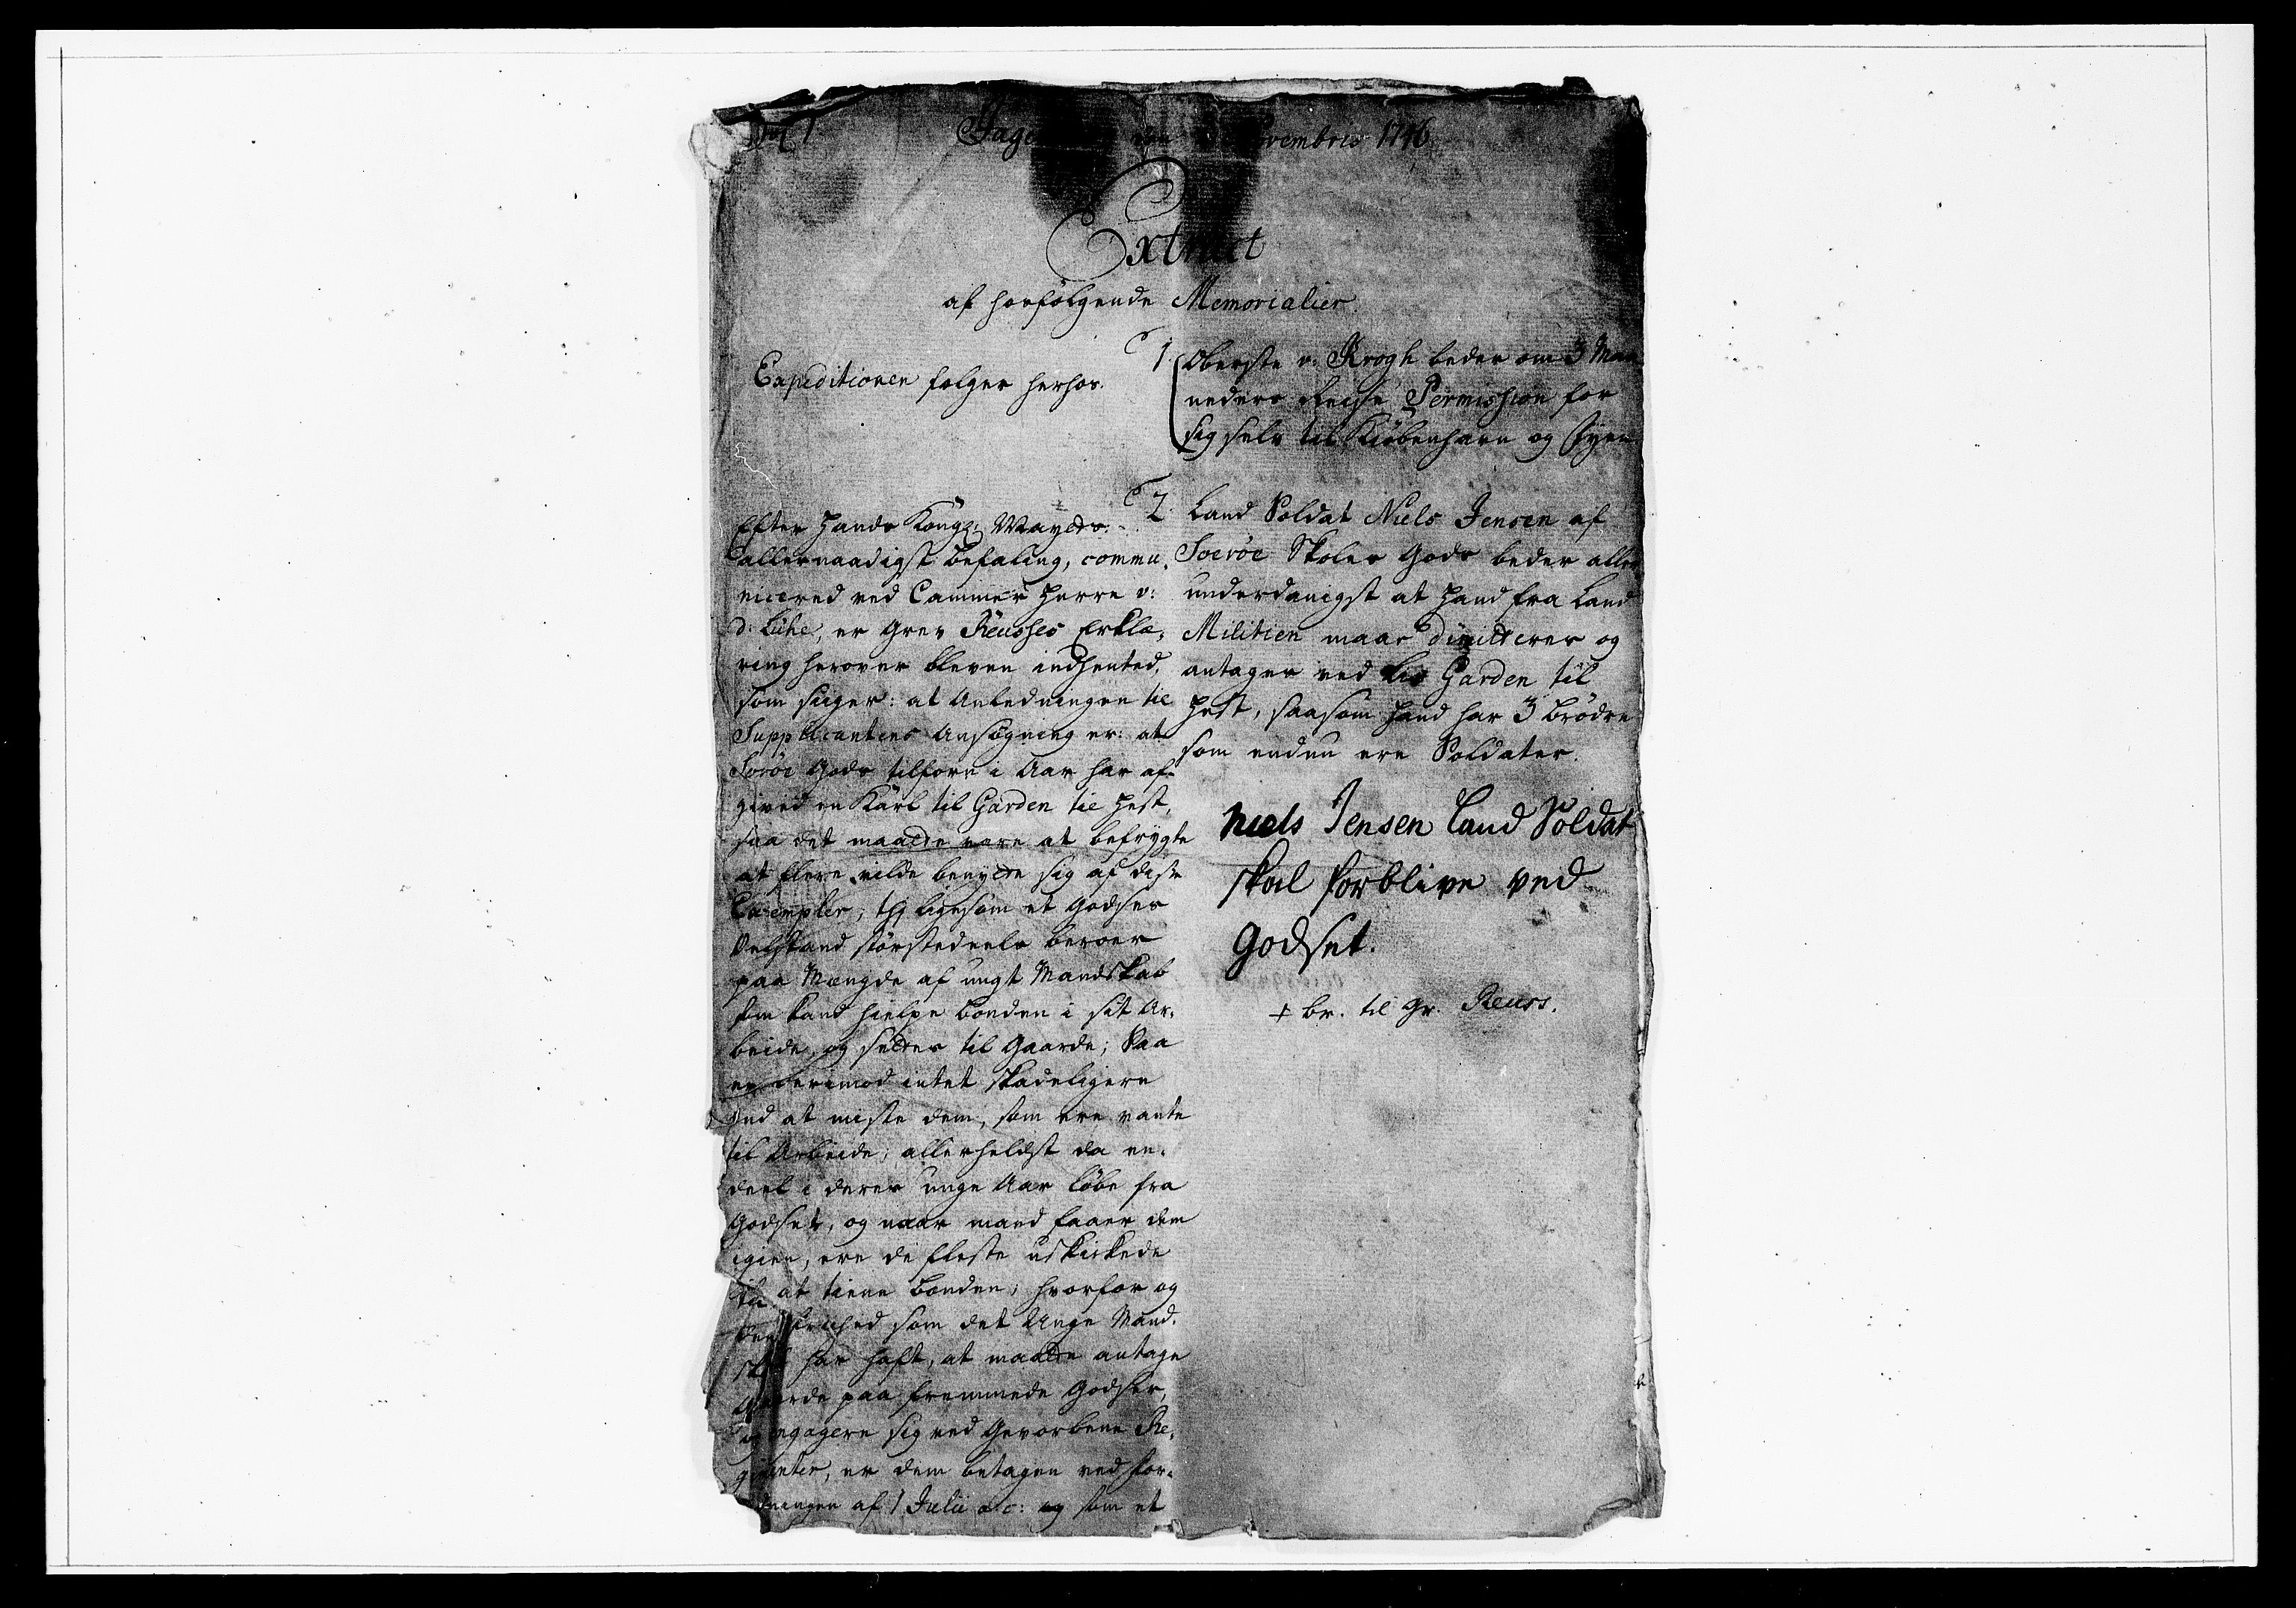 Novembris 1746
Extract
af herfølgende Memorialier.
Expeditionen følger herhos.
1 Oberste v: Krogh beder om 3 Maa
neders Reise Permission for
sig selv til Kiøbenhavn og Fyen
Efter Hands Kongl: Mayts:
allernaadigst befaling, commu,
nicered ved Cammer Herre v:
d: Lühe, er Grev Reusses Erklæ,
ring herover bleven indhented,
som siiger: at Anledningen til
Supplicantens Ansøgning er: at
Soröe Gods tilforn i Aar har af,
gived en Karl til Garden til Hest,
saa det maatte være at befrygte
at flere vilde benytte sig af disse
Exempler; thj ligesom et Godses
Velstand størstedeels beroer
paa Mængde af ungt Mandskab
som kand hielpe bonden i sit Ar,
beide, og settes til Gaarde; Saa
er derimod intet skadeligere
End at miste dem, som ere vante
til Arbeide; allerhelst da en,
deel i deres unge Aar løbe fra
Godset, og naar mand faaer dem
igien, ere de fleste uskikkede
til at tiene bonden; hvorfor og
den friehed som det Unge Mand,
skab har haft, at maatte antage
Gaarde paa fremmede Godser,
og engagere sig ved Gevorbene Re,
gimenter, er dem betagen ved for,
ordningen af 1 Julii a.c: og som et
2. Land Soldat Niels Jensen af
Soeröe Skoles Gods beder aller
underdanigst at Hand fra Land
Militien maae dimitteres og
antages ved Liv Garden til
Hest, saasom Hand har 3 brødre
som endnu ere Soldater.
Niels Jensen Land Soldat
skal forblive ved
Godset.
‡ br. til Gr. Reuss.